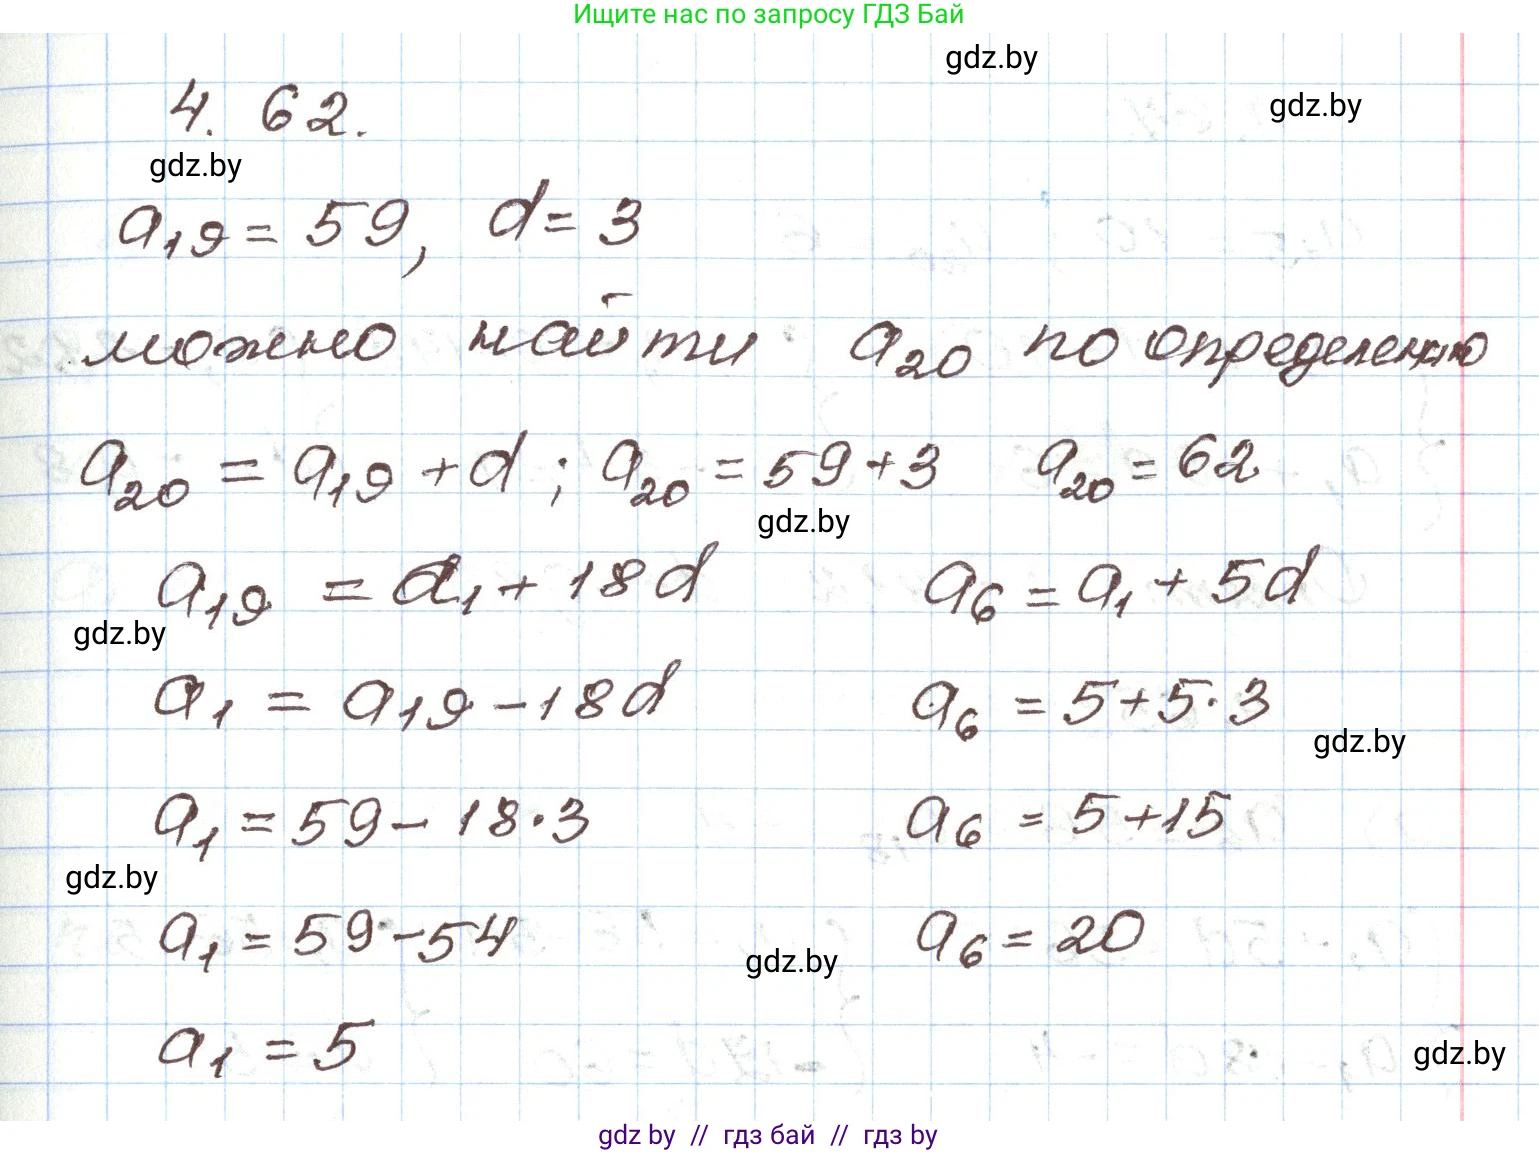 Ищите нас по запросу ГДЗ Бай
gdz.by
gdz.by
4. 62.
gdz.by
a₁₉ = 59, d = 3
можно найти a₂₀ по определению
a₂₀ = a₁₉ + d ; a₂₀ = 59 + 3 a₂₀ = 62
gdz.by
a₁₉ = a₁ + 18d a₆ = a₁ + 5d
gdz.by
a₁ = a₁₉ - 18d a₆ = 5 + 5·3
gdz.by
a₁ = 59 - 18·3 a₆ = 5 + 15
gdz.by
a₁ = 59 - 54 a₆ = 20
gdz.by
a₁ = 5
gdz.by
gdz by // гдз бай // гдз by